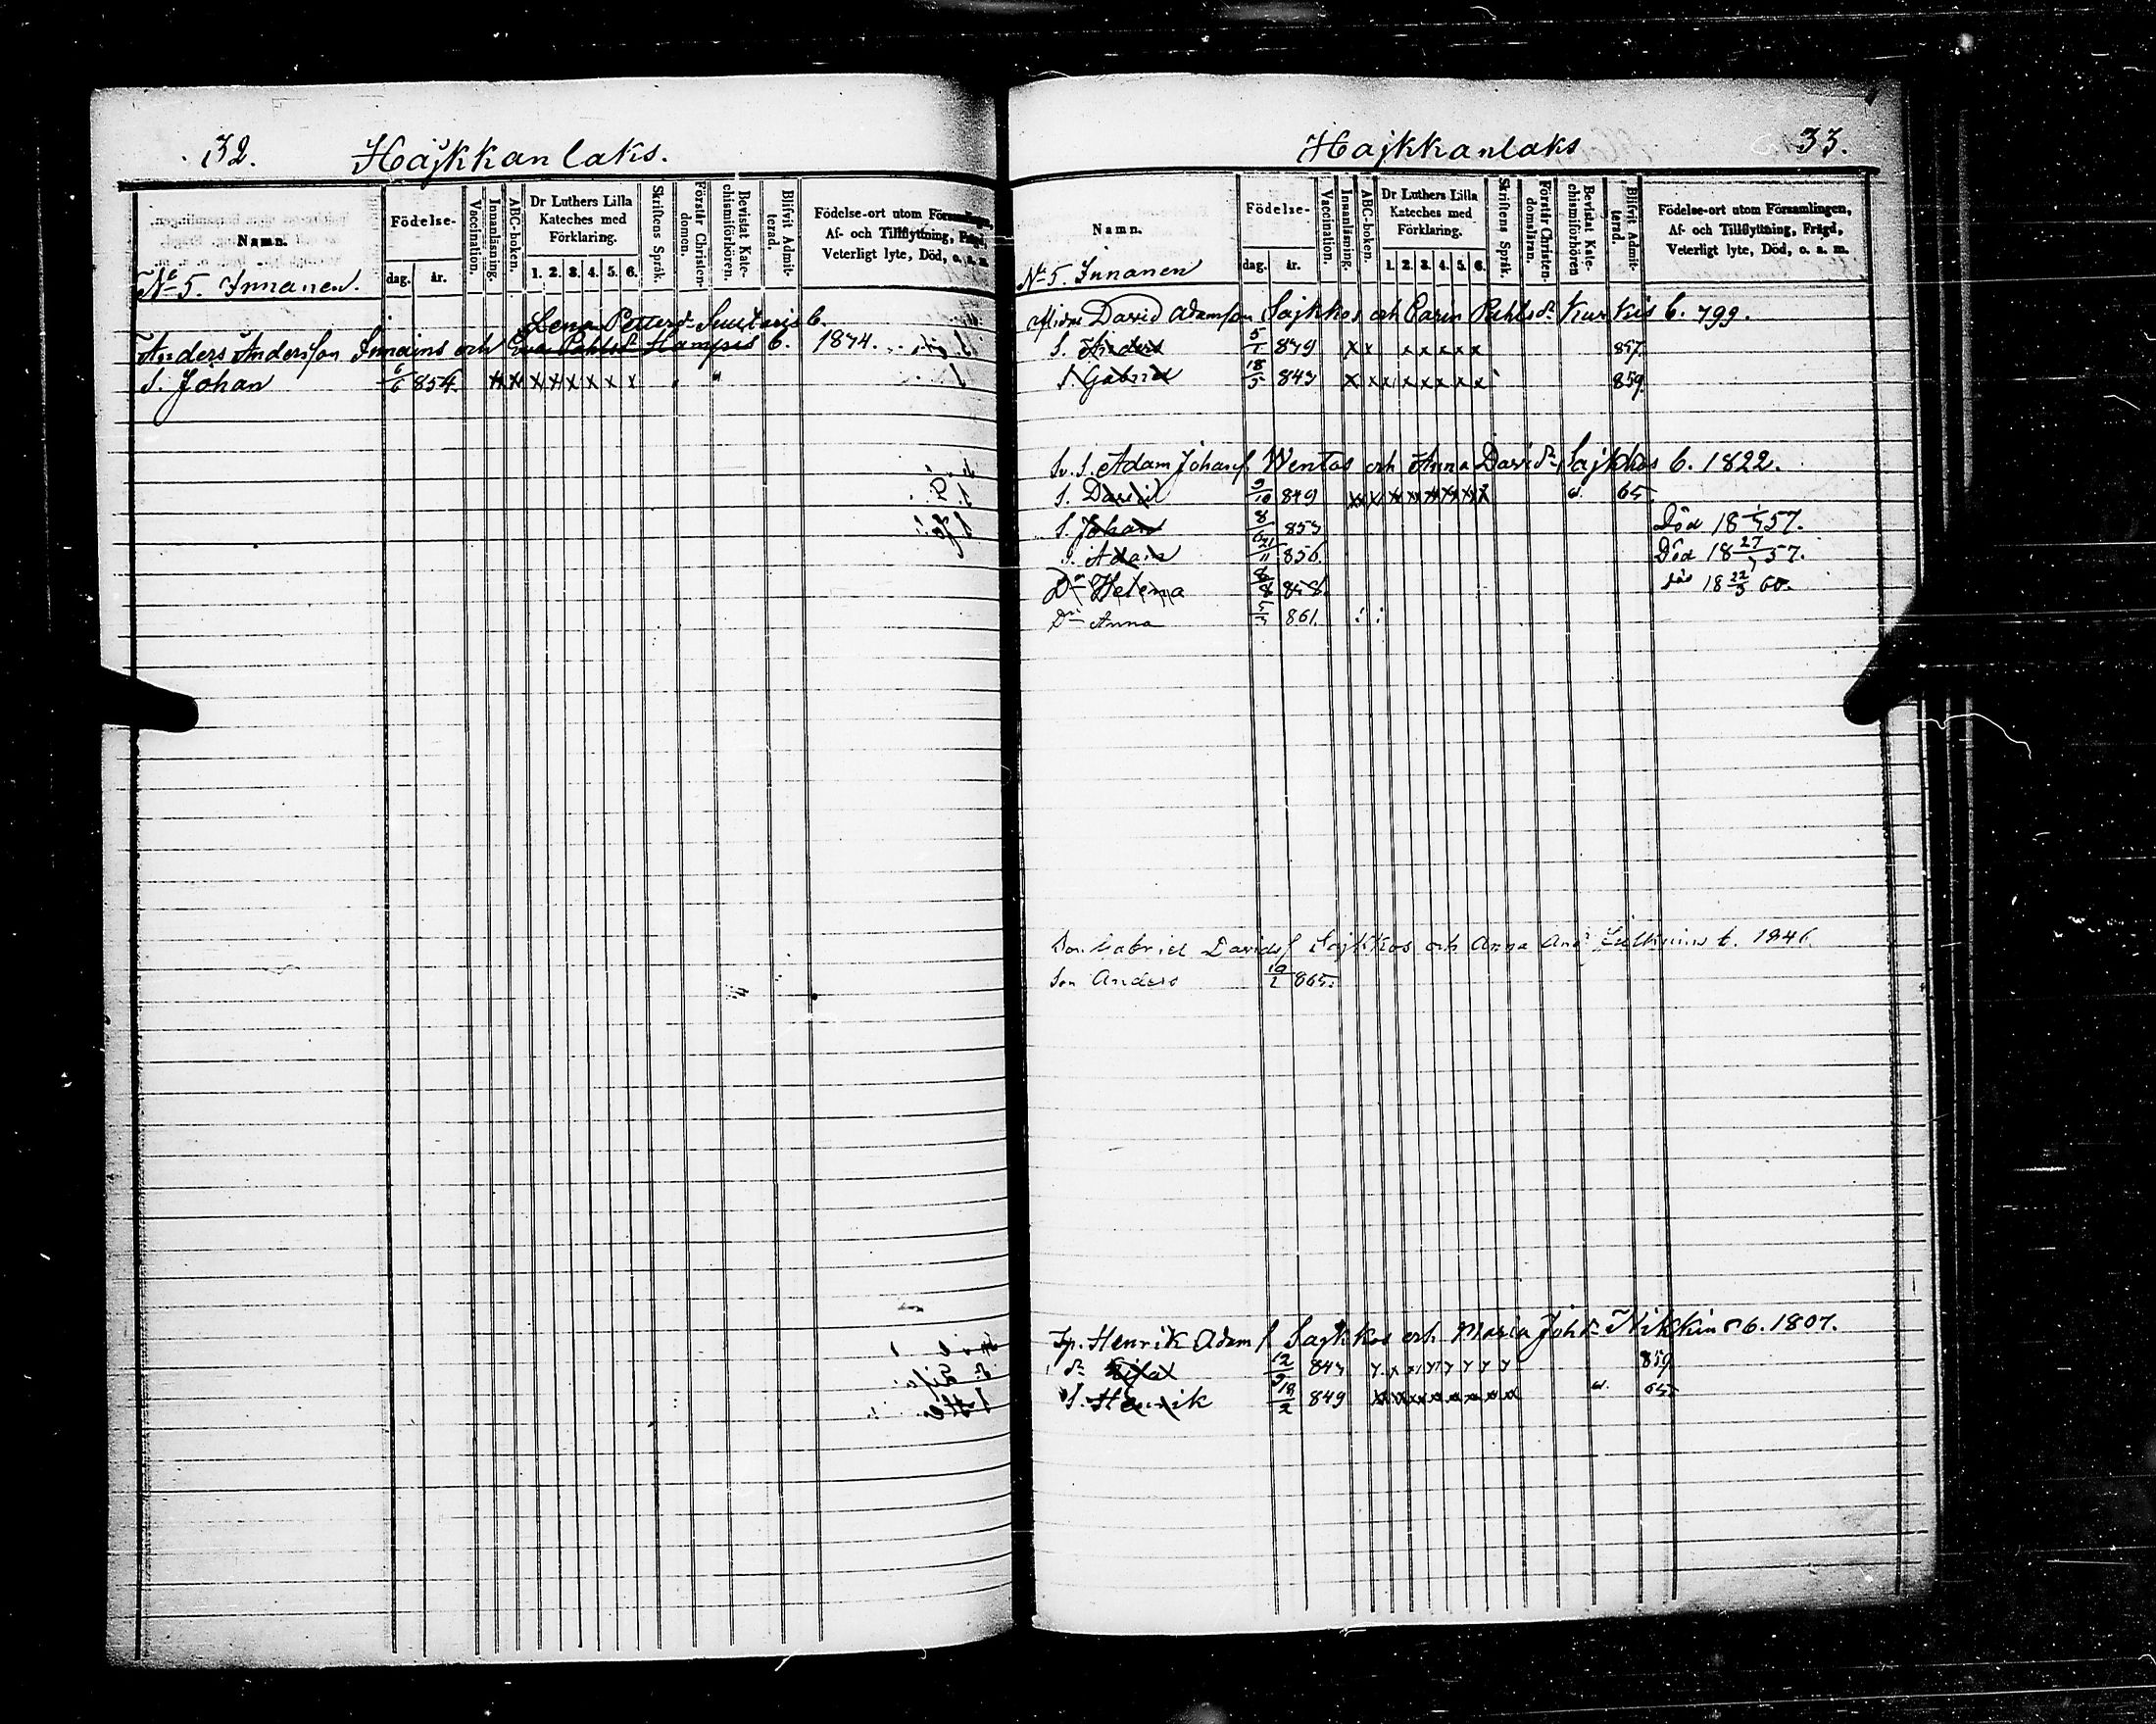 32. Hajkkanlaks.
Namn.
Födelse-
dag. år.
Vaccination.
Innanläsning.
ABC-boken.
Dr Luthers Lilla Kateches med Förklaring.
1. 2. 3. 4. 5. 6.
Skriftens Språk.
Förstår Christendomen.
Bevistat Katechismiförhören.
Blifvit Admitterad.
Födelse-ort utom Församlingen,
Af- och Tillflyttning, Frägd,
Veterligt lyte, Död, o. s. m.
No 5. Innanen.
Lena Pettersdr b.
Anders Andersson Innains och Eva Pahlsdr Hamps b. 1874.
S. Johan 6/6 854. x x x x x x x x
Hajkkanlaks 33.
Namn.
Födelse-
dag. år.
Vaccination.
Innanläsning.
ABC-boken.
Dr Luthers Lilla Kateches med Förklaring.
1. 2. 3. 4. 5. 6.
Skriftens Språk.
Förstår Christendomsläran.
Bevistat Katechismiförhören
Blifvit Admitterad.
Födelse-ort utom Församlingen,
Af- och Tillflyttning, Frägd,
Veterligt lyte, Död, o. s. m.
No 5. Innanen
David Adamson Sajkkos och Carin Pahlsdr Kurkis b. 799.
S. Anders 5/1 839 x x x x x x x 857.
S. Gabriel 18/5 843 x x x x x x x x 859.
Sv. S. Adam Johans Wentos och Anna Davidsdr Sajkkos b. 1822.
S. David 9/10 849 x x x x x x x x 65
S. Johan 8/6 853 Död 18 57.
S. Adam 21/11 856. Död 18 27/7 57.
Dr Helena 8/8 858. död 18 22/3 60.
Dr Anna 861.
Son Gabriel Davids Sajkkos och Anna And. b. 1846
Son Anders 19/2 865.
Henrik Adams Sajkkos och Maria Johsdr b. 1807.
dr 12/9 843 859
S. Henrik 19/2 849 x x x x x x x x 65